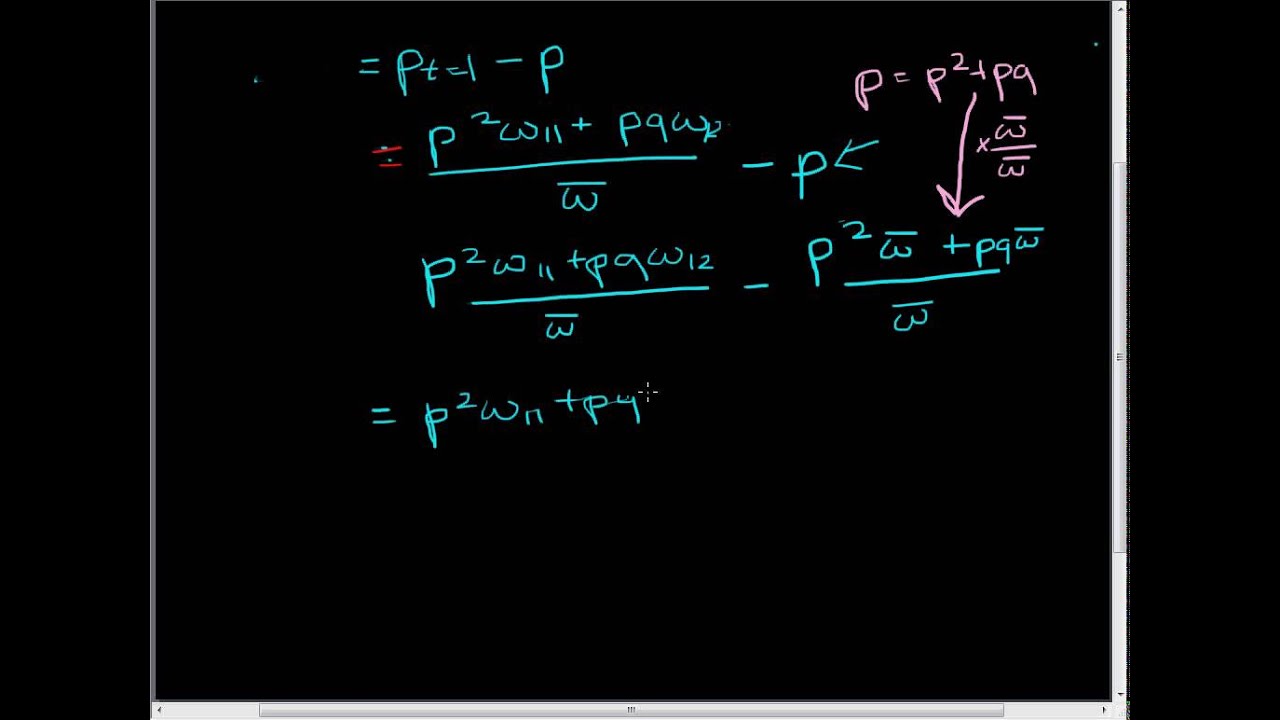 = p_{t=1} - p
p = p² + pq
= \frac{p²ω₁₁ + pqω₁₂}{ω̄} - p
× \frac{ω̄}{ω̄}
\frac{p²ω₁₁ + pqω₁₂}{ω̄} - \frac{p²ω̄ + pqω̄}{ω̄}
= p²ω₁₁ + pq